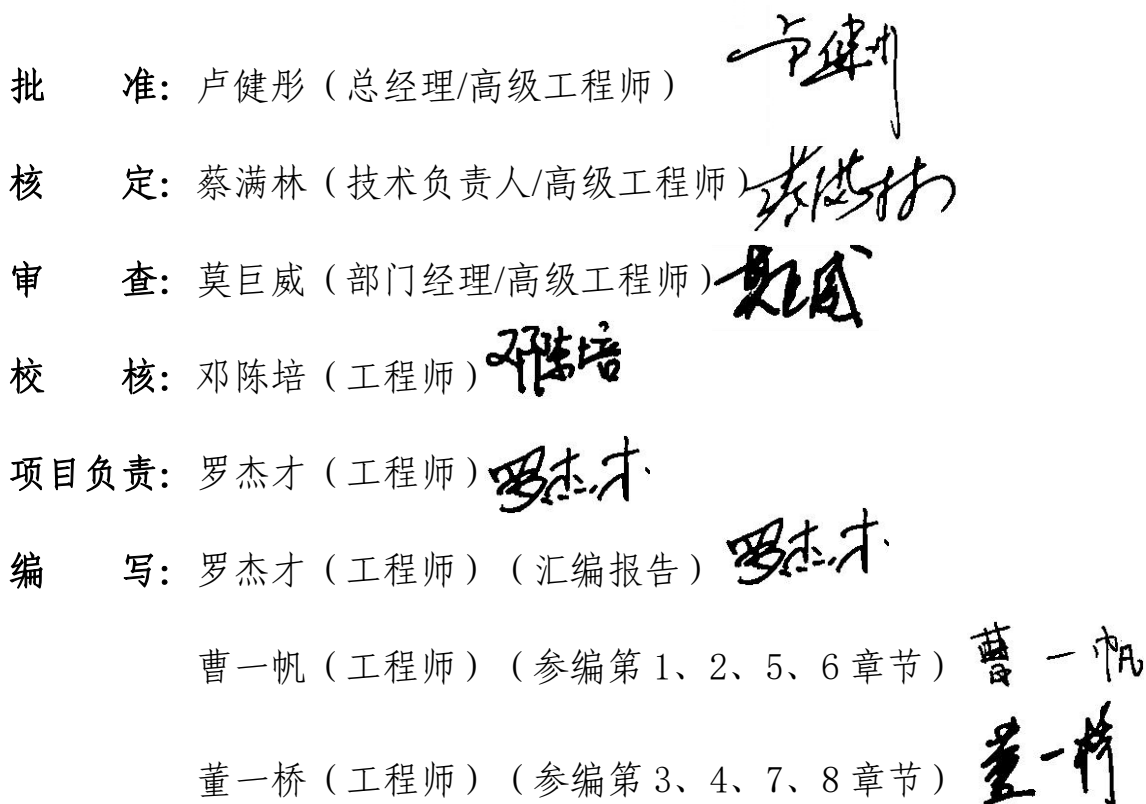 批　　准：卢健彤（总经理/高级工程师）
核　　定：蔡满林（技术负责人/高级工程师）
审　　查：莫巨威（部门经理/高级工程师）莫巨威
校　　核：邓陈培（工程师）邓陈培
项目负责：罗杰才（工程师）罗杰才
编　　写：罗杰才（工程师）（汇编报告）罗杰才
曹一帆（工程师）（参编第 1、2、5、6 章节）曹一帆
董一桥（工程师）（参编第 3、4、7、8 章节）董一桥